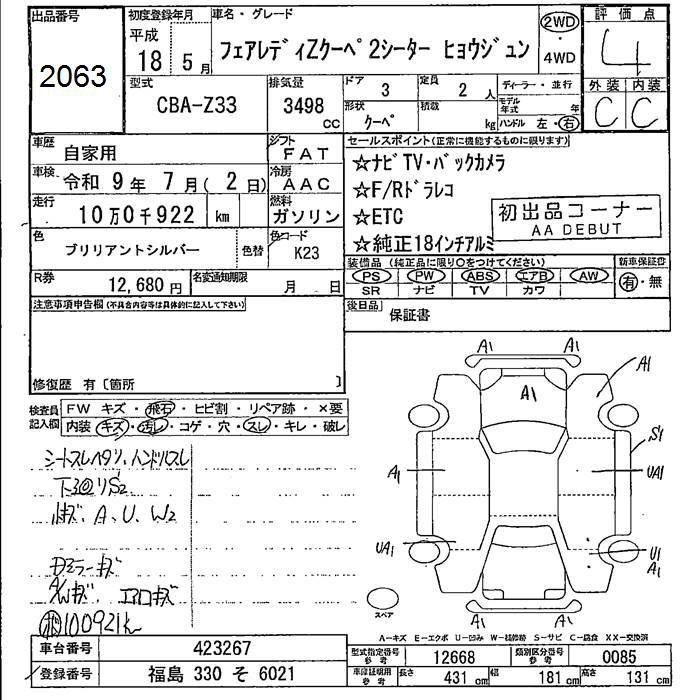 出品番号
2063
初度登録年月
平成
18 5月
車名・グレード
フェアレディZクーペ 2シーター ヒョウジュン
2WD
・
4WD
評価点
4
型式
CBA-Z33
排気量
3498
cc
ドア
3
定員
2 人
形状
クーペ
積載
kg
ディーラー・並行
モデル年式 年
ハンドル 左・右
外装 内装
C C
車歴
自家用
シフト
FAT
車検
令和 9年 7月( 2日)
冷房
AAC
走行
10万0千922 km
燃料
ガソリン
色
ブリリアントシルバー
色替
色コード
K23
R券
12,680円
名変通知期限
月 日
セールスポイント(正常に機能するものに限ります)
☆ナビTV・バックカメラ
☆F/Rドラレコ
☆ETC
☆純正18インチアルミ
初出品コーナー
AA DEBUT
装備品 (純正品に限り○をつけてください)
PS PW ABS エアB AW
SR ナビ TV カワ
新車保証書
有・無
注意事項申告欄(不具合内容等は具体的に記入して下さい)
後日品
保証書
修復歴 有〔箇所 〕
検査員
記入欄
FW キズ・飛石・ヒビ割・リペア跡・×要
内装 キズ・汚レ・コゲ・穴・スレ・キレ・破レ
シートスレヘタリ、ハンドルスレ
下廻りS2
小キズ、A、U、W2
Dミラーキズ
A/Wキズ エアロキズ
100921k
A1 A1
A1 A1
S1
A1 UA1
UA1 U1
A1
A1 A1
スペア
A-キズ E-エクボ U-凹み W-補修跡 S-サビ C-腐食 XX-交換済
車台番号
423267
登録番号
福島 330 そ 6021
型式指定番号
参考
12668
類別区分番号
参考
0085
車庫証明用
参考
長さ 431 cm 幅 181 cm 高さ 131 cm